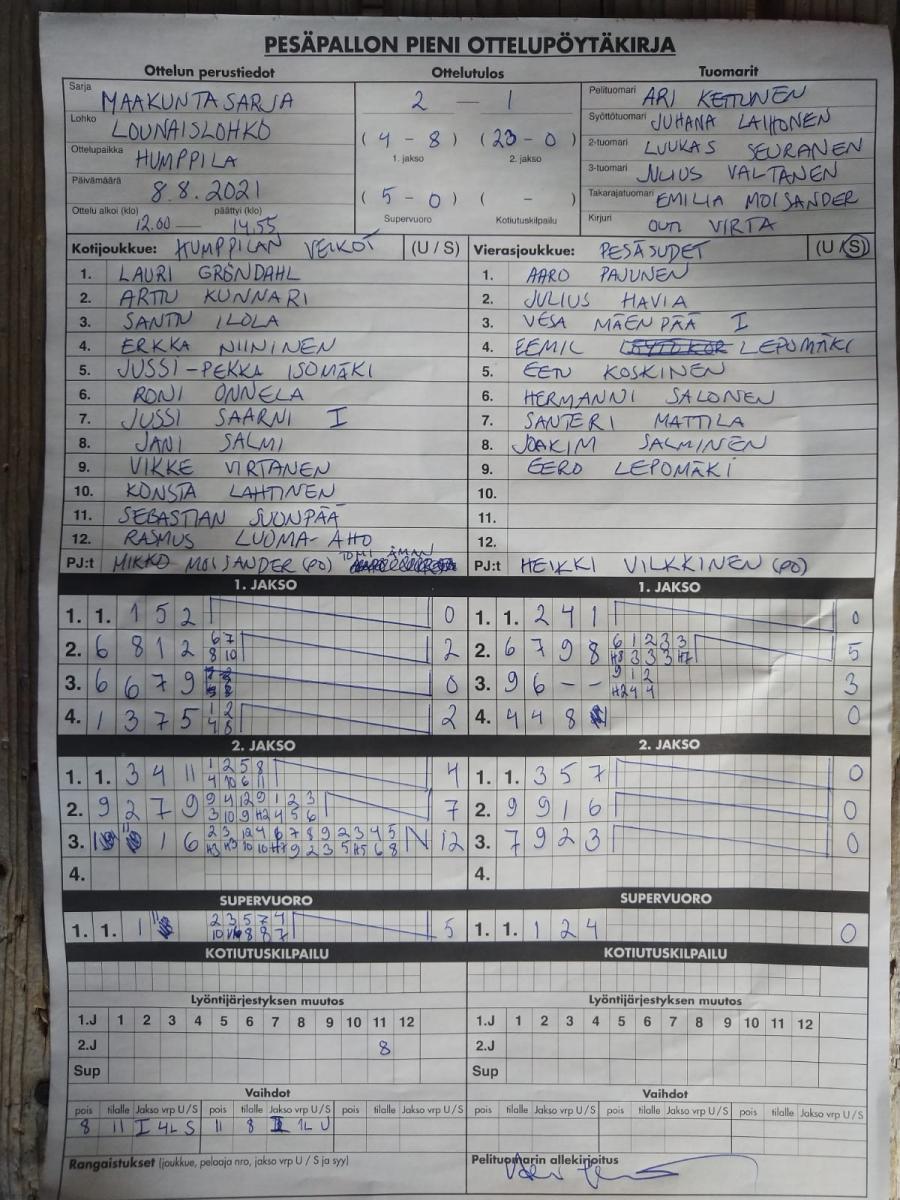 PESÄPALLON PIENI OTTELUPÖYTÄKIRJA
Ottelun perustiedot
Sarja MAAKUNTASARJA
Lohko LOUNAISLOHKO
Ottelupaikka HUMPPILA
Päivämäärä 8.8.2021
Ottelu alkoi (klo) päättyi (klo)
12.00 — 14.55
Ottelutulos
2 — 1
(4 - 8) (23 - 0)
1. jakso 2. jakso
(5 - 0) ( - )
Supervuoro Kotiutuskilpailu
Tuomarit
Pelituomari ARI KETTUNEN
Syöttötuomari JUHANA LAIHONEN
2-tuomari LUUKAS SEURANEN
3-tuomari JULIUS VALTANEN
Takarajatuomari EMILIA MOISANDER
Kirjuri OUTI VIRTA
Kotijoukkue: HUMPPILAN VEIKOT (U / S)
1. LAURI GRÖNDAHL
2. ARTTU KUNNARI
3. SANTTU ILOLA
4. ERKKA NIININEN
5. JUSSI-PEKKA ISOMÄKI
6. RONI ONNELA
7. JUSSI SAARNI I
8. JANI SALMI
9. VIKKE VIRTANEN
10. KONSTA LAHTINEN
11. SEBASTIAN SUONPÄÄ
12. RASMUS LUOMA-AHO
PJ:t MIKKO MOISANDER (PO) TOMI ÄMAN
Vierasjoukkue: PESÄSUDET (U / S)
1. AARO PAJUNEN
2. JULIUS HAVIA
3. VESA MÄENPÄÄ I
4. EEMIL LEPOMÄKI
5. EETU KOSKINEN
6. HERMANNI SALONEN
7. SANTERI MATTILA
8. JOAKIM SALMINEN
9. EERO LEPOMÄKI
10.
11.
12.
PJ:t HEIKKI VILKKINEN (PO)
1. JAKSO
1. 1. 1 5 2 0
2. 6 8 1 2 6 7 2
8 10
3. 6 6 7 9 0
4. 1 3 7 5 1 2 2
4 8
1. JAKSO
1. 1. 2 4 1 0
2. 6 7 9 8 6 1 2 3 3 5
H8 3 3 3 H7
3. 9 6 - - 9 1 2 3
H2 4 4
4. 4 4 8 0
2. JAKSO
1. 1. 3 4 11 1 2 5 8 4
4 10 6 11
2. 9 2 7 9 9 4 12 9 1 2 3 7
3 10 9 H2 4 5 6
3. 1 6 2 3 12 4 6 7 8 9 2 3 4 5 N 12
H3 H3 10 10 H7 9 2 3 5 H5 6 8
4.
2. JAKSO
1. 1. 3 5 7 0
2. 9 9 1 6 0
3. 7 9 2 3 0
4.
SUPERVUORO
1. 1. 1 2 3 5 7 4 5
10 8 8 7
SUPERVUORO
1. 1. 1 2 4 0
KOTIUTUSKILPAILU
KOTIUTUSKILPAILU
Lyöntijärjestyksen muutos
1.J 1 2 3 4 5 6 7 8 9 10 11 12
2.J 8
Sup
Lyöntijärjestyksen muutos
1.J 1 2 3 4 5 6 7 8 9 10 11 12
2.J
Sup
Vaihdot
pois tilalle Jakso vrp U / S pois tilalle Jakso vrp U / S pois tilalle Jakso vrp U / S
8 11 I 4L S 11 8 1L U
Vaihdot
pois tilalle Jakso vrp U / S pois tilalle Jakso vrp U / S pois tilalle Jakso vrp U / S
Rangaistukset (joukkue, pelaaja nro, jakso vrp U / S ja syy)
Pelituomarin allekirjoitus